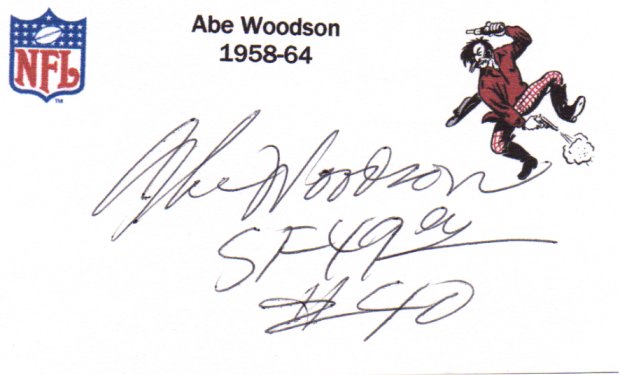 Abe Woodson
1958-64
NFL
TM
Abe Woodson
SF 49er
#40